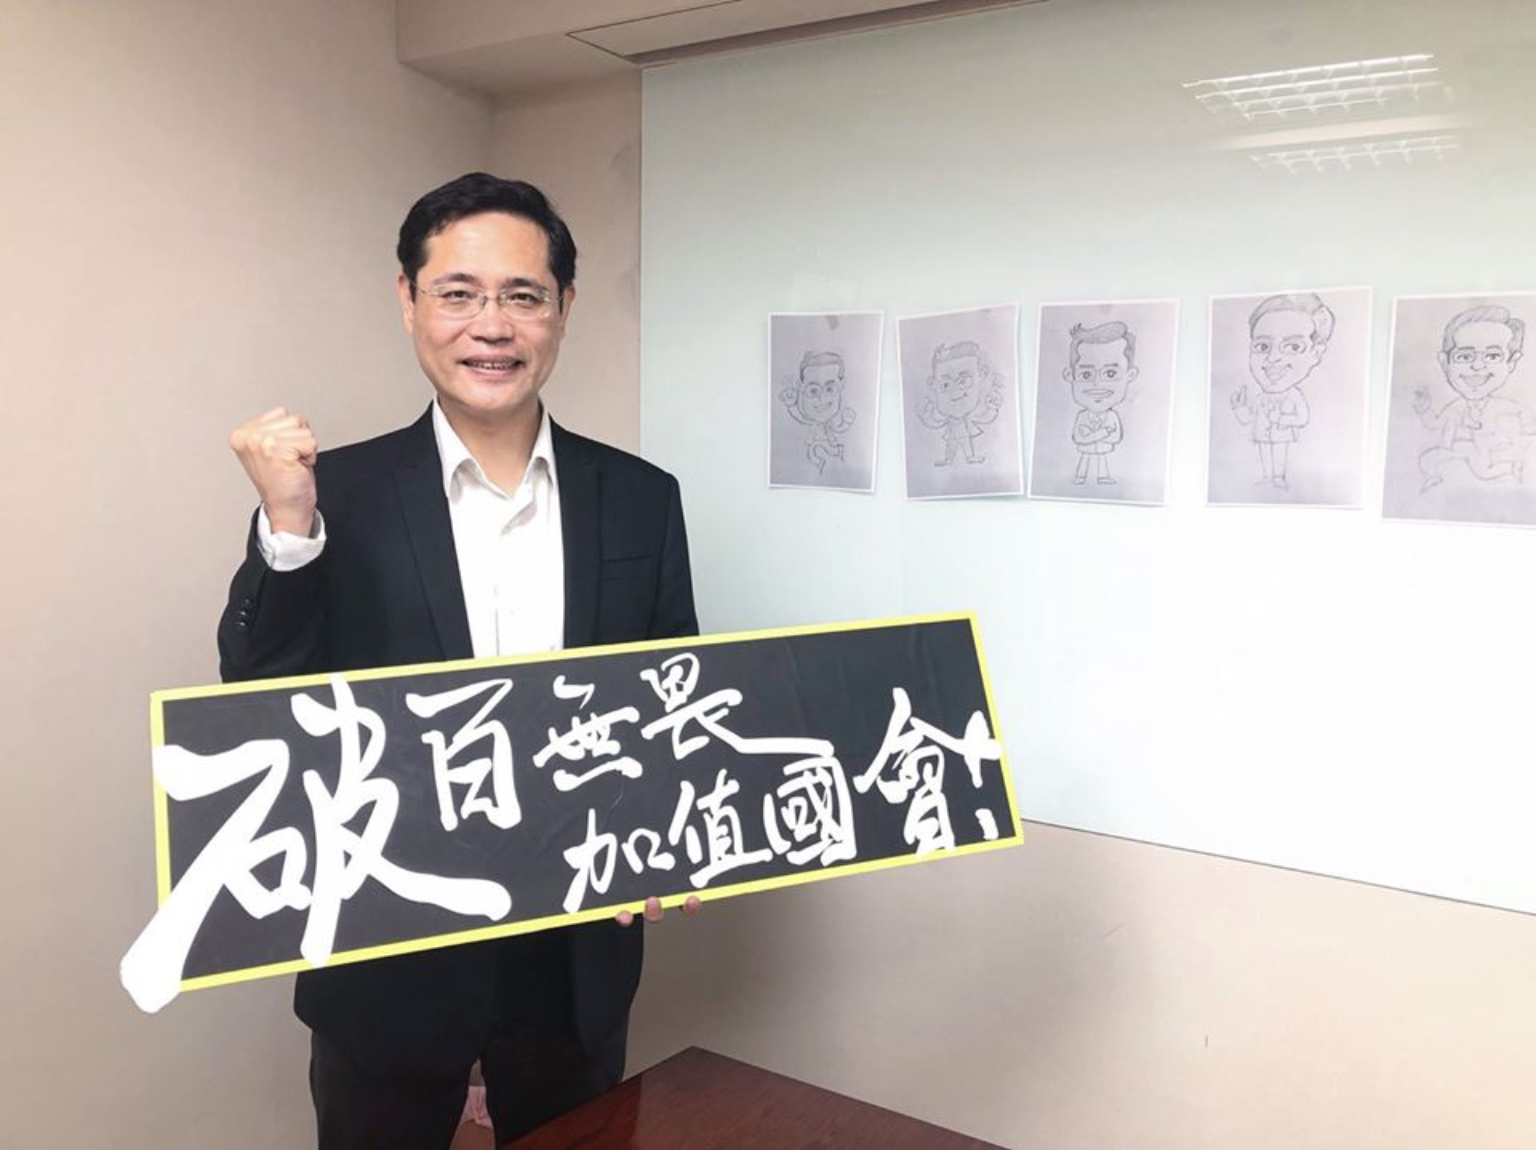 破百無畏
加值國會!